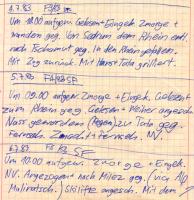 4.7.83 FS
Um 10.00 aufgew. Gelesen + Eingek. Zmorge +
wandern geg. Von Sedrun dem Rhein entl.
nach Tschamut geg. In den Rhein gefallen.
Mit Zug zurück. Mit Horst Tota grilliert.
5.7.83 FABRSF
Um 09.00 aufgew. Zmorge + Eingk. Gelesen +
zum Rhein geg. Gelesen + Weiher angesch.
Nass geworden (Regen) zu Tota geg.
Fernseh. Zmorge + Fernseh. NV
6.7.83 FS SF
Um 10.00 aufgew. Zmorge + Eingek.
NV. Angezogen + nach Milez geg. (vic Alp
Mulinatsch.) Skilifte angesch. Mit dem